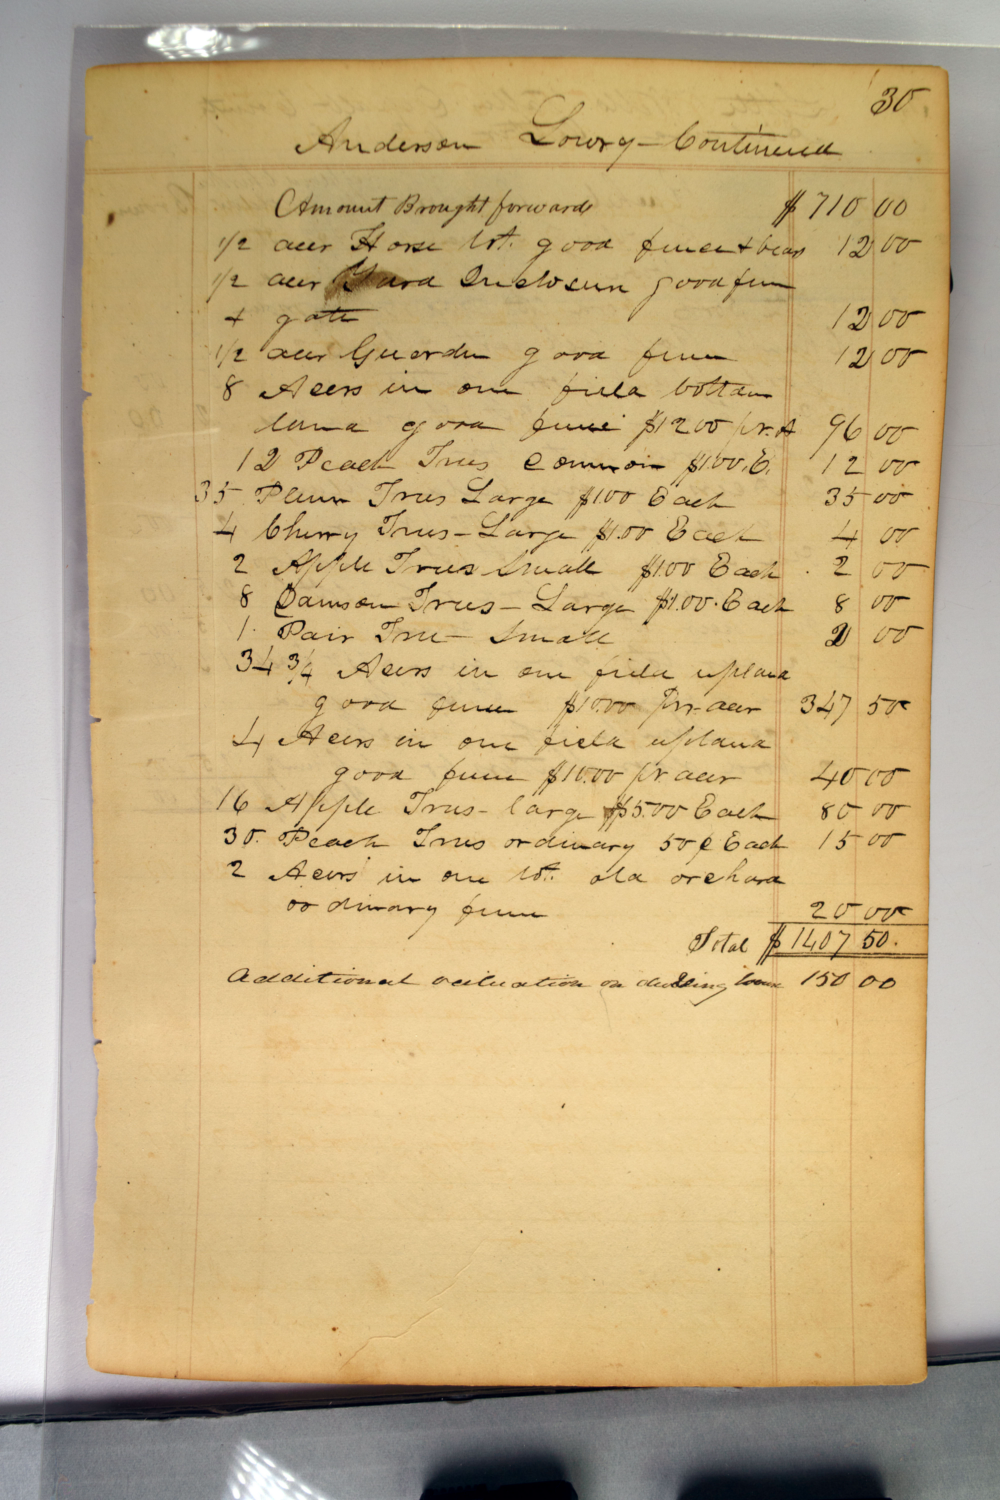 30
Anderson Lowry - Continued
Amount Brought forwards $ 710 00
1/2 acer Horse lot. good fence & bears 12 00
1/2 acer Yard Inclosur good fenc
+ gate 12 00
1/2 acer Guerden good fenc 12 00
8 Acers in one field bottom
land good fence $12 00 pr. A 96 00
12 Peach Trees common $1.00. E. 12 00
35 Plum Trees Large $1.00 Each 35 00
4 Cherry Trees - Large $1.00 Each 4 00
2 Apple Trees Small $1.00 Each 2 00
8 Damson Trees - Large $1.00. Each 8 00
1 Pair Tree - Small 2 00
34 3/4 Acers in one field upland
good fence $10.00 Pr. acer 347 50
4 Acers in one field upland
good fence $10.00 pr acer 40 00
16 Apple Trees - large $5.00 Each 80 00
30. Peach Trees ordinary 50 ¢ Each 15 00
2 Acers in one lot. old orchard
ordinary fence 20 00
Total $ 1407 50.
Additional valuation on dwelling house 150 00